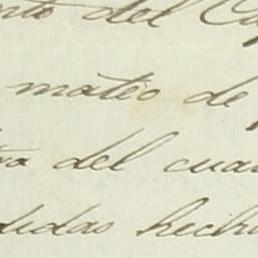 nto del Cap
mateo de
ra del cuar
didas hechu